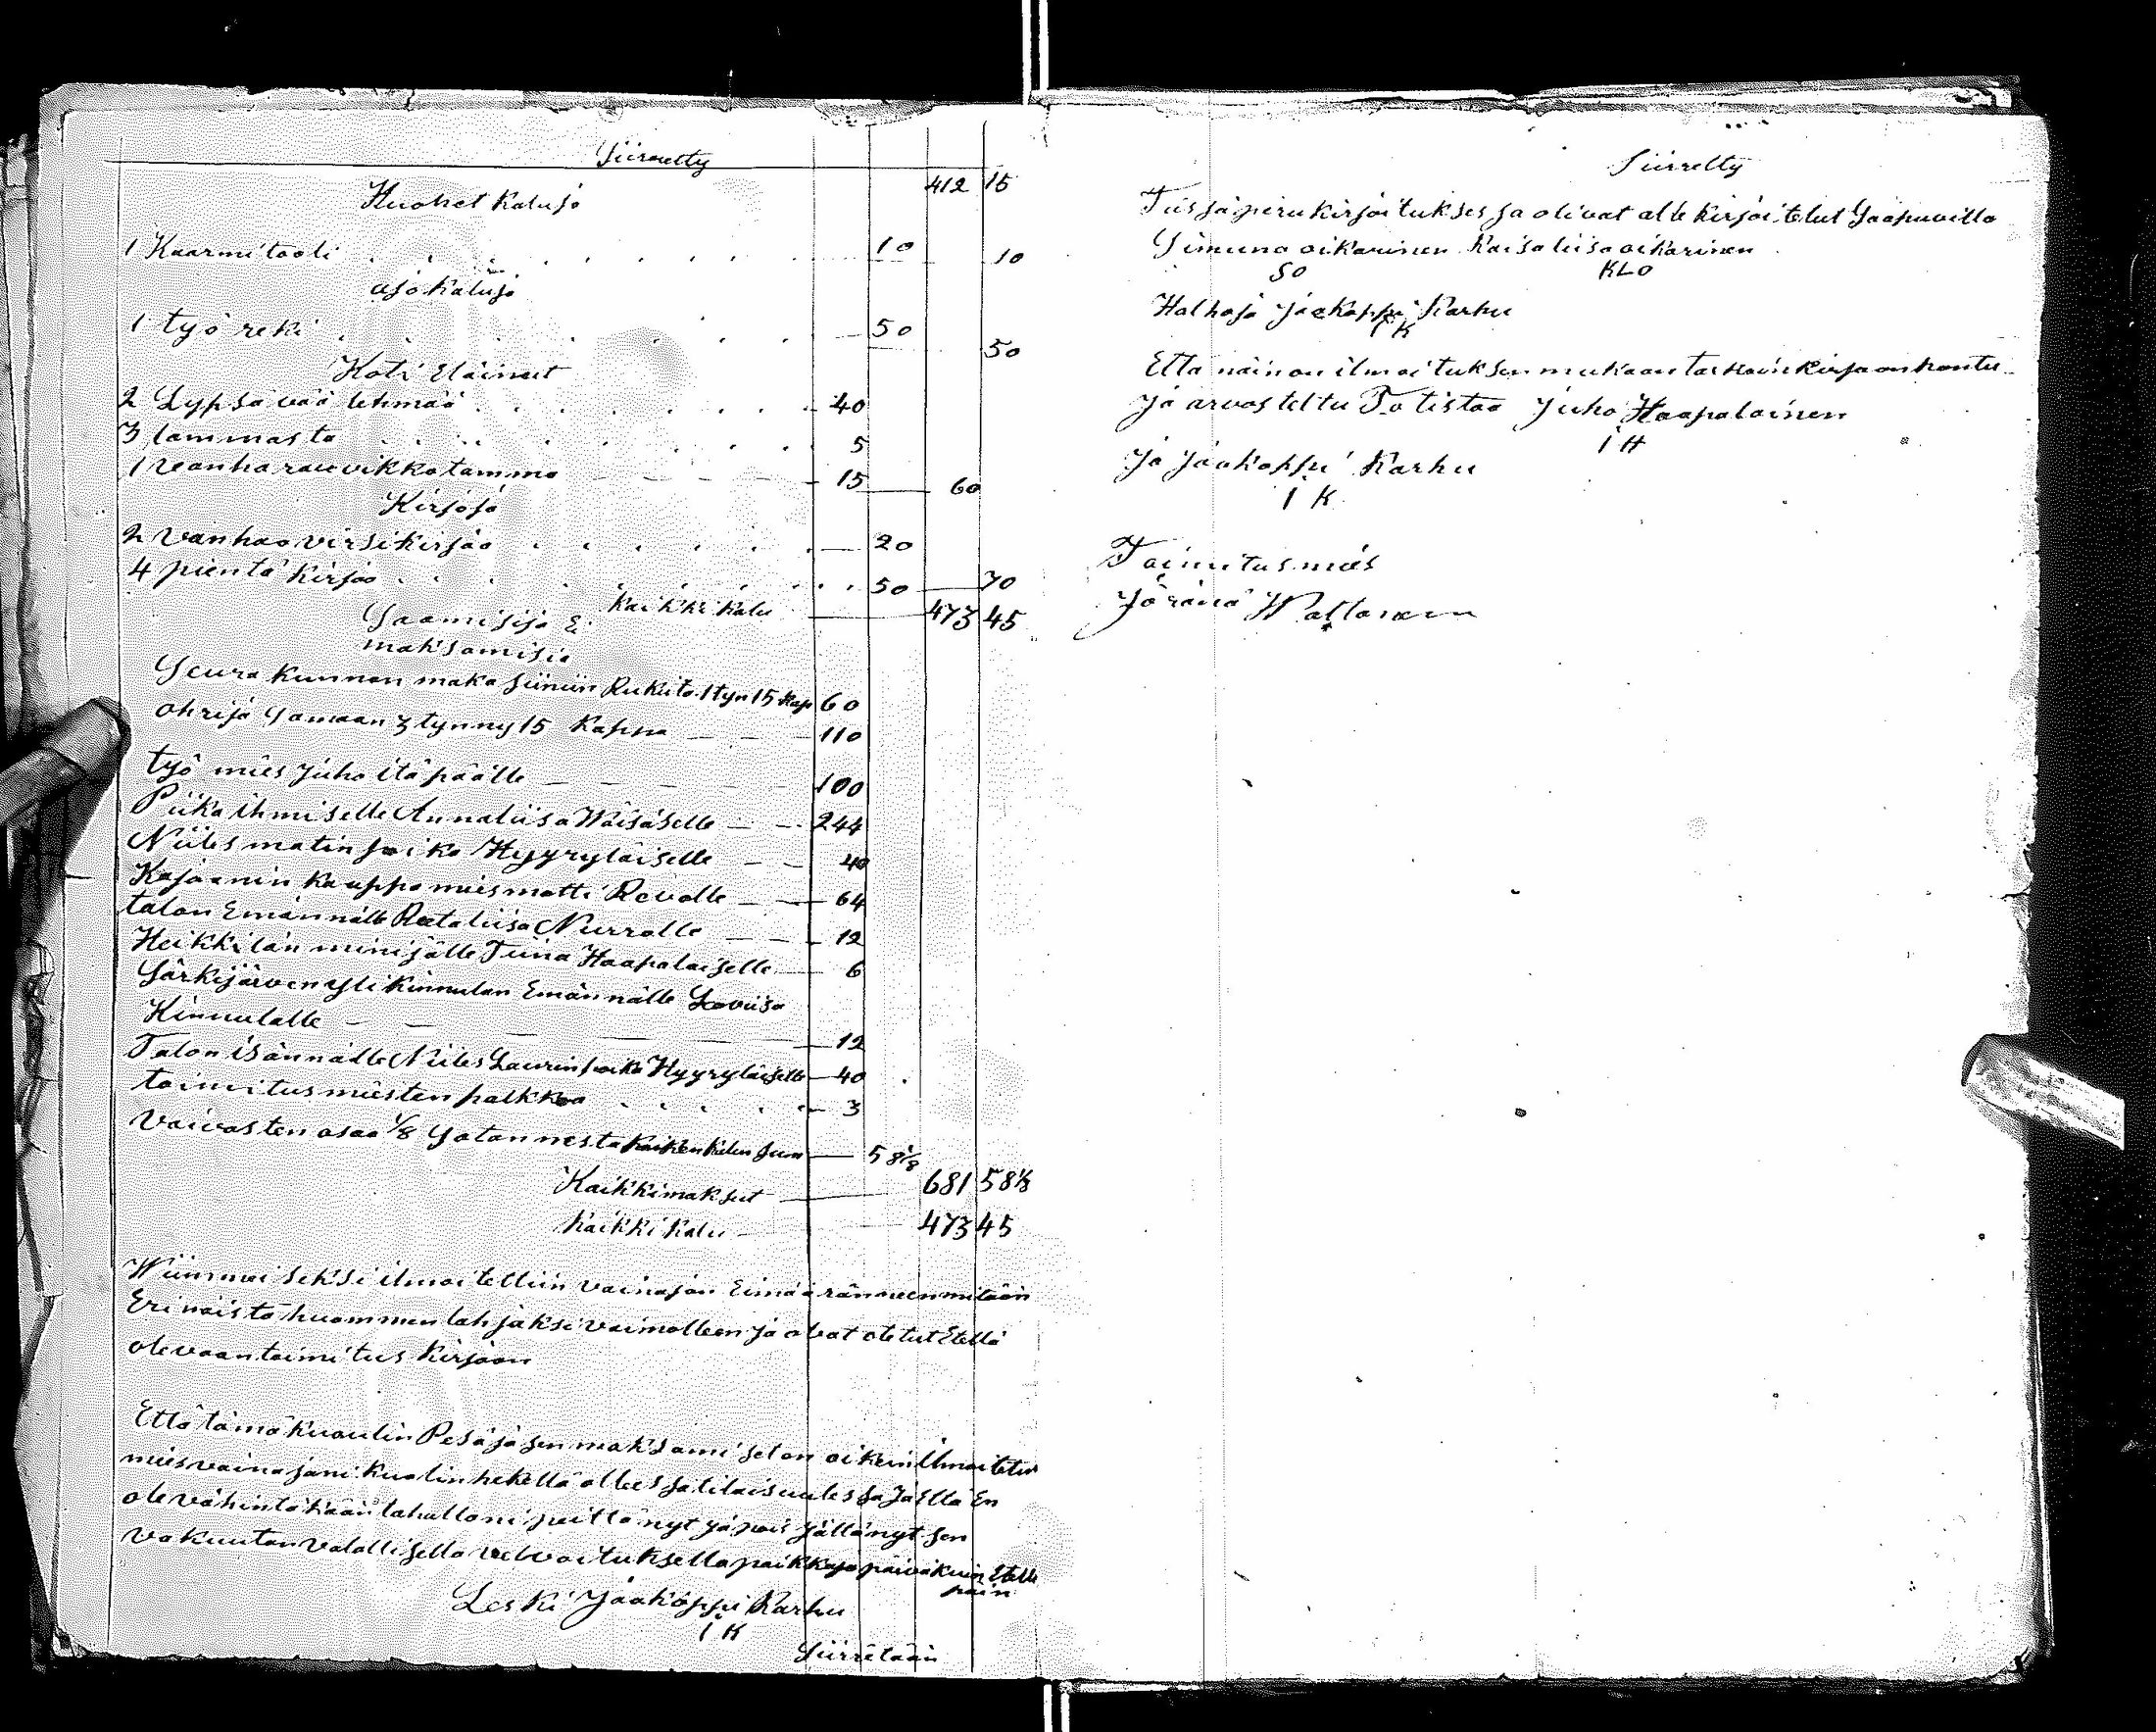 Siirretty
412 15
Huonet kaluja
1 Kaarmitooli . . . . . . . 10 10
ajokaluja
1 työ reki . . . . . . 50
50
Koti Eläimet
2 Lypsävää lehmää . . . . . . 40
3 lammasta . . . . . . 5
1 vanha rauvikkotamma — — — — 15 60
Kirjoja
2 vanhaa virsikirjaa . . . . . . 20
4 pientä kirjaa . . . . . . . 50 70
kaikki kalu 473 45
Saamisija Ei
maksamisia
Seurakunnan makasiiniin Rukiita 1 tyn 15 kap 60
ohrija Samaan 3 tynny 15 Kappa — — — 110
työ mies Juho itäpäälle — — — — 100
Piika ihmiselle Annaliisa Wäisäselle — — 244
Niiles matin poika Hyyryläiselle — — 40
Kajaanin kauppa mies matti Revolle — — 64
talon Emännälle Reetaliisa Nurralle — — 12
Heikkilän minijälle Tiina Haapalaiselle — 6
Särkijärven yli kinnulan Emännälle Loviisa
Kinnulalle — — — — 12
Talon isännälle Niiles Laurinpoika Hyyryläiselle — 40
toimitusmiesten palkkaa . . . . . 3
Vaivasten osaa 1/8 Satannesta kaiken kalun sum — 58 1/8
Kaikkimaksut — 681 58 1/8
kaikki kalu — 473 45
Wiimmaiseksi ilmoitettiin vainajan Eimääränneen mitään
Erinäistä huommen lahjaksi vaimolleen ja ovat otetut Etellä
olevaan toimitus kirjaan
Että tämä kuoulin Pesä ja sen maksamiset on oikein ilmoitetu
miesvainajani kuolin hekellä ollees sa tilaisuudessa ja Että En
ole vähintäkään tahallani peittänyt ja pois jättänyt sen
vakuutan valallisella velvoituksella paikka ja päivä kuin Etelle
päin
Leski Jaakoppi Karhu
I K
Siirretään
Siirretty
Tässä perukirjoituksessa olivat alle kirjoitetut Saapuvilla
Simuna oikarinen Kaisaliisa oikarinen
SO KLO
Halhoja Jaakoppi Karhu
I K
Etta näin on ilmoituksen mukaan tarkoin kirjaan pantu
ja arvosteltu Totistaa Juho Haapalainen
i H
ja Jaakoppi Karhu
I K
Toimitus mies
Jöränä Waltanen